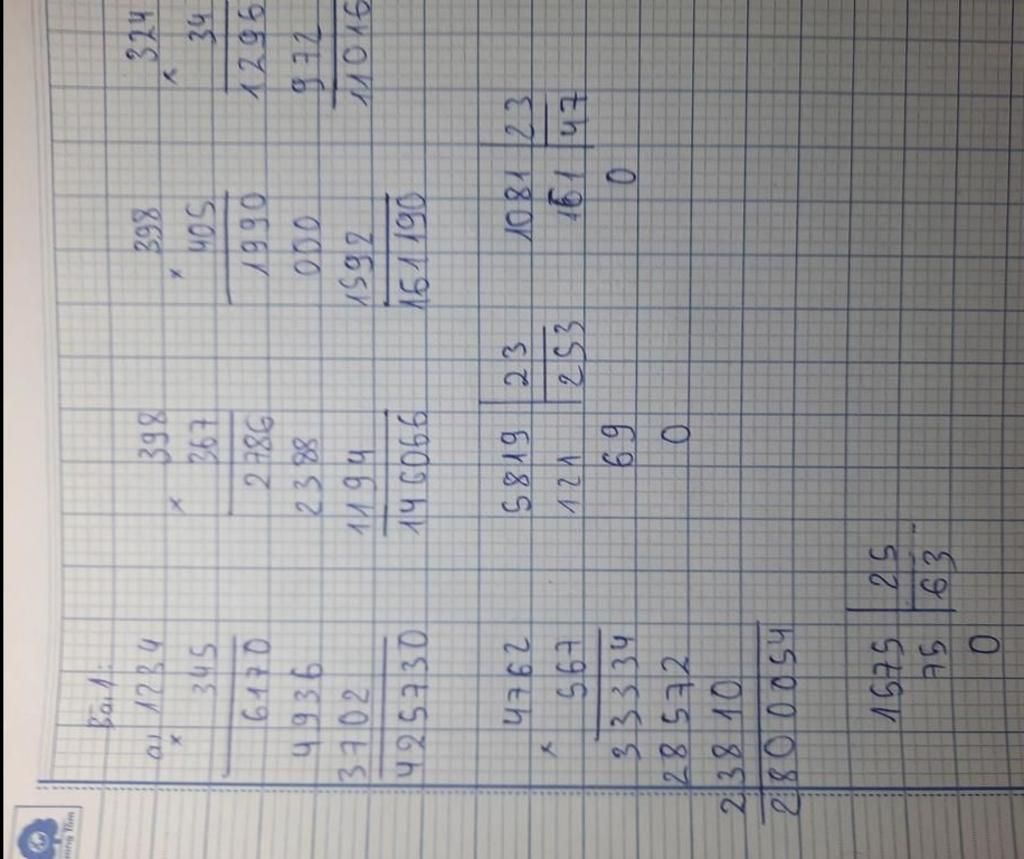 Bài 1:
a) 1234
×
345
6170
4936
3702
425730
398
×
367
2786
2388
1194
146066
398
×
405
1990
000
1592
161190
324
×
34
1296
972
11016
4762
×
567
33334
28572
23810
2800054
5819 23
121 253
69
0
1081 23
161 47
0
1575 25
75 63
0